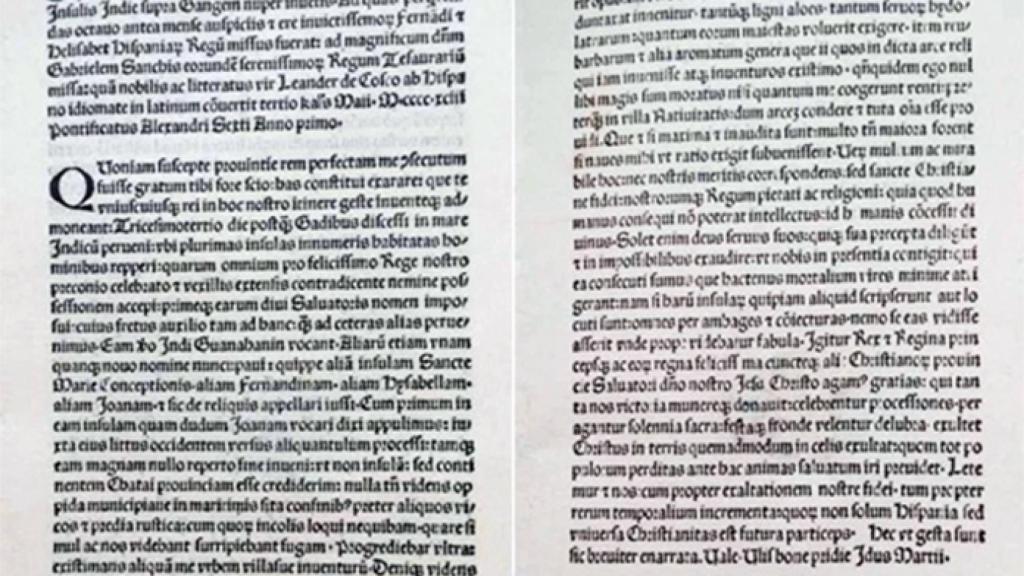 Insulis Indie supra Gangem nuper inuẽtis
das octauo antea mense auspiciis ⁊ ere inuictissemoꝝ Fernãdi ⁊
Helisabet Hispaniaꝝ Regũ missus fuerat: ad magnificum dñm
Gabrielem Sanchis eorundẽ serenissimoꝝ Regum Tesaurariũ
missa: quã nobilis ac litteratus vir Leander de Cosco ab Hispa
no idiomate in latinum cõuertit tertio kal's Maii· M·cccc·xciii
Pontificatus Alexandri Sexti Anno primo·
Quoniam suscepte prouintie rem perfectam me ꝯsecutum
fuisse gratum tibi fore scio: has constitui exarare: que te
vniuscuiusqꝫ rei in hoc nostro itinere geste inuenteqꝫ ad⸗
moneant: Tricesimotertio die postqꝫ Gadibus discessi in mare
Indicũ perueni: vbi plurimas insulas innumeris habitatas ho⸗
minibus repperi: quarum omnium pro felicissimo Rege nostro
preconio celebrato ⁊ vexillis extensis contradicente nemine pos⸗
sessionem accepi: primeqꝫ earum diui Saluatoris nomen impo⸗
sui: cuius fretus auxilio tam ad hanc: qꝫ ad ceteras alias perue⸗
nimus· Eam ꝟo Indi Guanahanin vocant· Aliarũ etiam vnam
quanqꝫ nouo nomine nuncupaui· quippe aliã insulam Sancte
Marie Conceptionis· aliam Fernandinam· aliam Hysabellam·
aliam Joanam· ⁊ sic de reliquis appellari iussi· Cum primum in
eam insulam quam dudum Joanam vocari dixi appulimus: iu⸗
xta eius littus occidentem versus aliquantulum processi: tamqꝫ
eam magnam nullo reperto fine inueni: vt non insulã: sed conti
nentem Chatai prouinciam esse crediderim: nulla tñ videns op
pida municipiaue in maritimis sita confinibꝰ preter aliquos vi⸗
cos ⁊ predia rustica: cum quoꝝ incolis loqui nequibam· quare si
mul ac nos videbant surripiebant fugam· Progrediebar vltra:
existimans aliquã me vrbem villasue inuenturũ· Deniqꝫ videns
duntarat inuenitur· tantũqꝫ ligni aloes· tantum seruoꝝ hydo⸗
latrarum: quantum eorum maiestas voluerit exigere· item reu⸗
barbarum ⁊ alia aromatum genera que ii quos in dicta arce reli
qui iam inuenisse atqꝫ inuenturos existimo· qñquidem ego nul
libi magis sum moratus nisi quantum me coegerunt venti: pre⸗
terqꝫ in villa Natiuitatis: dum arcẽ condere ⁊ tuta oĩa esse pro
uidi· Que ⁊ si maxima ⁊ inaudita sunt: multo tñ maiora forent
si naues mihi vt ratio exigit subuenissent· Veꝝ multum ac mira
bile hoc: nec nostris meritis correspondens· sed sancte Christia⸗
ne fidei: nostrorumqꝫ Regum pietati ac religioni: quia quod hu
manus consequi nõ poterat intellectus: id humanis cõcessit di
uinus· Solet enim deus seruos suos: quiqꝫ sua precepta diligũt
⁊ in impossibilibus exaudire: vt nobis in presentia contigit: qui
ea consecuti sumus que hactenus mortalium vires minime atti
gerant: nam si harũ insulaꝝ quipiam aliquid scripserunt aut lo
cuti sunt: omnes per ambages ⁊ cõiecturas· nemo se eas vidisse
asserit vnde prope videbatur fabula· Igitur Rex ⁊ Regina prin
cepsqꝫ ac eoꝝ regna felicissima cuncteqꝫ alie Christianoꝝ prouin
cie Saluatori dño nostro Jesu Christo agamꝰ gratias: qui tan
ta nos victoria munereqꝫ donauit: celebrentur processiones· per
agantur solennia sacra: festaqꝫ fronde velentur delubra· exultet
Christus in terris quemadmodum in celis exultat: quom tot po
pulorum perditas ante hac animas saluatum iri preuidet· Lete
mur ⁊ nos: cum propter exaltationem nostre fidei· tum propter
rerum temporalium incrementa: quoꝝ non solum Hispania sed
vniuersa Christianitas est futura particeps· Hec vt gesta sunt
sic breuiter enarrata· Vale· Vlisbone pridie Idus Martii·